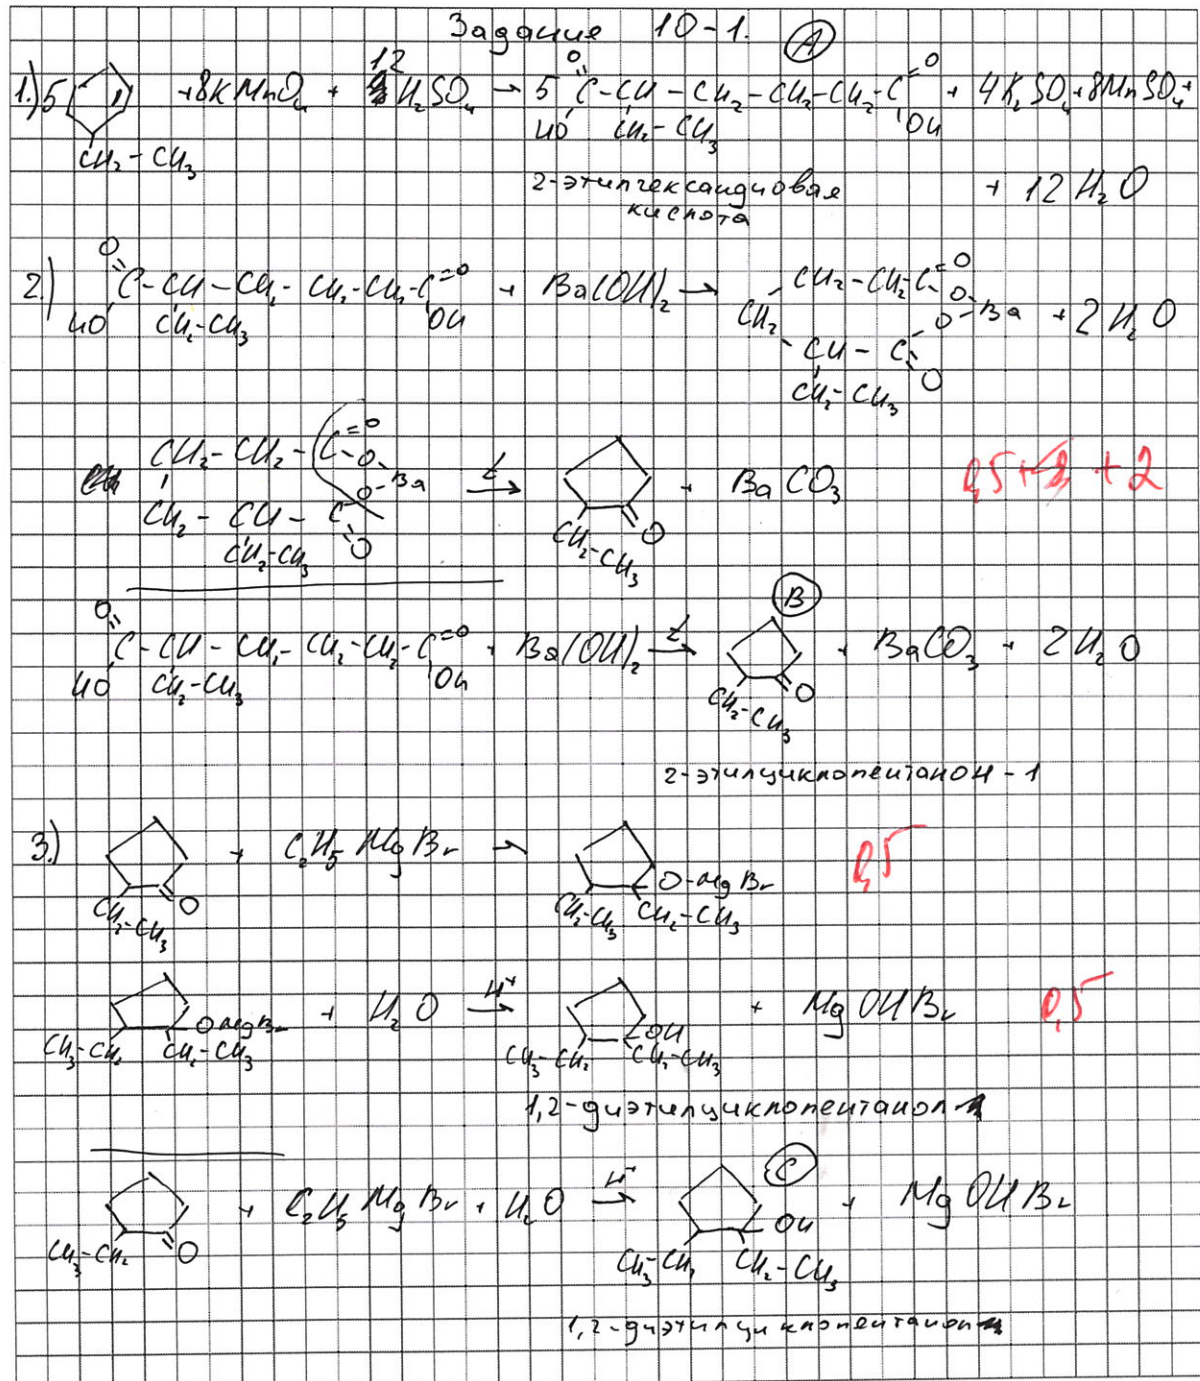 Задание 10-1. A
1.) 5 CH₂-CH₃ + 8KMnO₄ + 12 H₂SO₄ → 5 O=C(HO)-CH(CH₂-CH₃)-CH₂-CH₂-CH₂-C(=O)OH + 4K₂SO₄ + 8MnSO₄ +
2-этилгександиовая + 12 H₂O
кислота
2.) O=C(HO)-CH(CH₂-CH₃)-CH₂-CH₂-CH₂-C(=O)OH + Ba(OH)₂ → CH₂-CH₂-C(=O)-O-Ba-O-C(=O)-CH(CH₂-CH₃)-CH₂ + 2H₂O
CH₂-CH₂-C(=O)-O-Ba-O-C(=O)-CH(CH₂-CH₃)-CH₂ →(t) CH₂-CH₃ =O + BaCO₃ 0,5 + 2
B
O=C(HO)-CH(CH₂-CH₃)-CH₂-CH₂-CH₂-C(=O)OH + Ba(OH)₂ →(t) CH₂-CH₃ =O + BaCO₃ + 2H₂O
2-этилциклопентанон-1
3.) CH₂-CH₃ =O + C₂H₅MgBr → CH₂-CH₃ O-MgBr CH₂-CH₃ 0,5
CH₃-CH₂ OMgBr CH₂-CH₃ + H₂O →(H⁺) CH₃-CH₂ OH CH₂-CH₃ + MgOHBr 0,5
1,2-диэтилциклопентанол
C
CH₃-CH₂ =O + C₂H₅MgBr + H₂O →(H⁺) CH₃-CH₂ OH CH₂-CH₃ + MgOHBr
1,2-диэтилциклопентанол